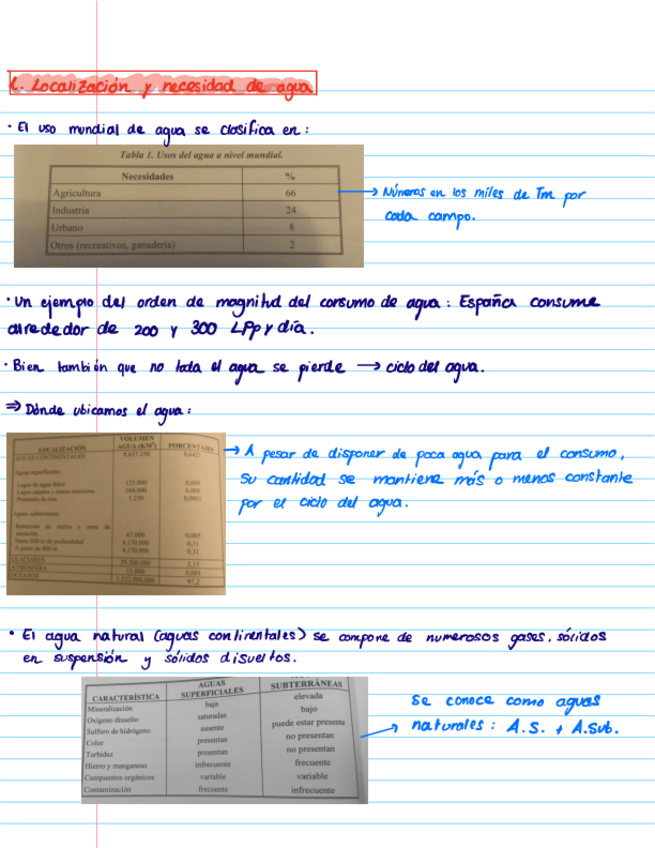 1. Localización y necesidad de agua
· El uso mundial de agua se clasifica en:
Tabla 1. Usos del agua a nivel mundial.
Necesidades %
Agricultura 66
Industria 24
Urbano 8
Otros (recreativos, ganadería) 2
→ Números en los miles de Tm por
cada campo.
· Un ejemplo del orden de magnitud del consumo de agua: España consume
alrededor de 200 y 300 LPp y día.
· Bien también que no toda el agua se pierde → ciclo del agua.
⇒ Dónde ubicamos el agua:
LOCALIZACIÓN VOLUMEN AGUA (KM³) PORCENTAJE
AGUAS CONTINENTALES 8.637.250
Aguas superficiales
Lagos de agua dulce 125.000 0,009
Lagos salados y mares interiores 104.000 0,008
Promedio de ríos 1.250 0,0001
Aguas subterráneas
67.000 0,005
Hasta 800 m de profundidad 4.170.000 0,31
A partir de 800 m 4.170.000 0,31
GLACIARES 29.200.000 2,15
ATMÓSFERA 13.000 0,001
OCÉANOS 1.322.000.000 97,2
→ A pesar de disponer de poca agua para el consumo,
su cantidad se mantiene más o menos constante
por el ciclo del agua.
· El agua natural (aguas continentales) se compone de numerosos gases, sólidos
en suspensión y sólidos disueltos.
CARACTERÍSTICA AGUAS SUPERFICIALES SUBTERRÁNEAS
Mineralización baja elevada
Oxígeno disuelto saturadas bajo
Sulfuro de hidrógeno ausente puede estar presente
Color presentan no presentan
Turbidez presentan no presentan
Hierro y manganeso infrecuente frecuente
Compuestos orgánicos variable variable
Contaminación frecuente infrecuente
Se conoce como aguas
→ naturales: A.S. + A.Sub.